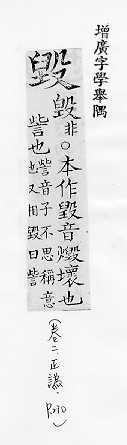 增廣字學舉隅
毀
毀非○本作毀音燬壞也
訾也訾音子不思稱意
也又用毀曰訾
(卷二．正譌．P210)